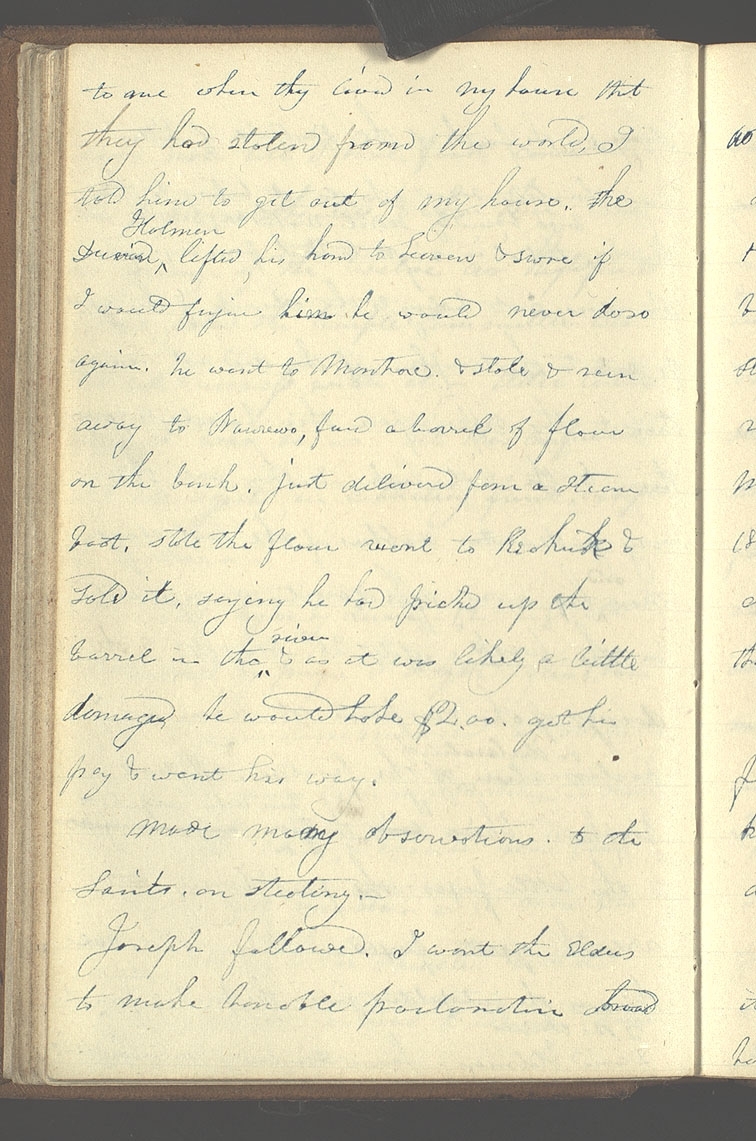 to me when they lived in my house that
they had stolen from the world, I
told him to get out of my house. the
Holmen
David, lifted his hand to heaven & swore if
I would forgive him he would never do so
again. he went to Montrose. & stole & run
away to Nauvwo, fund a barrel of flour
on the bank. just delivered from a steam
boat. stole the flour went to Keokuk &
sold it, saying he had picked up the
river
barrel in the & as it was likely a little
damaged he would take $2.00. got his
pay & went his way.
made many observations. to the
Saints. on stealing.—
Joseph followed. I want the Elders
to make honorable proclamation
ao